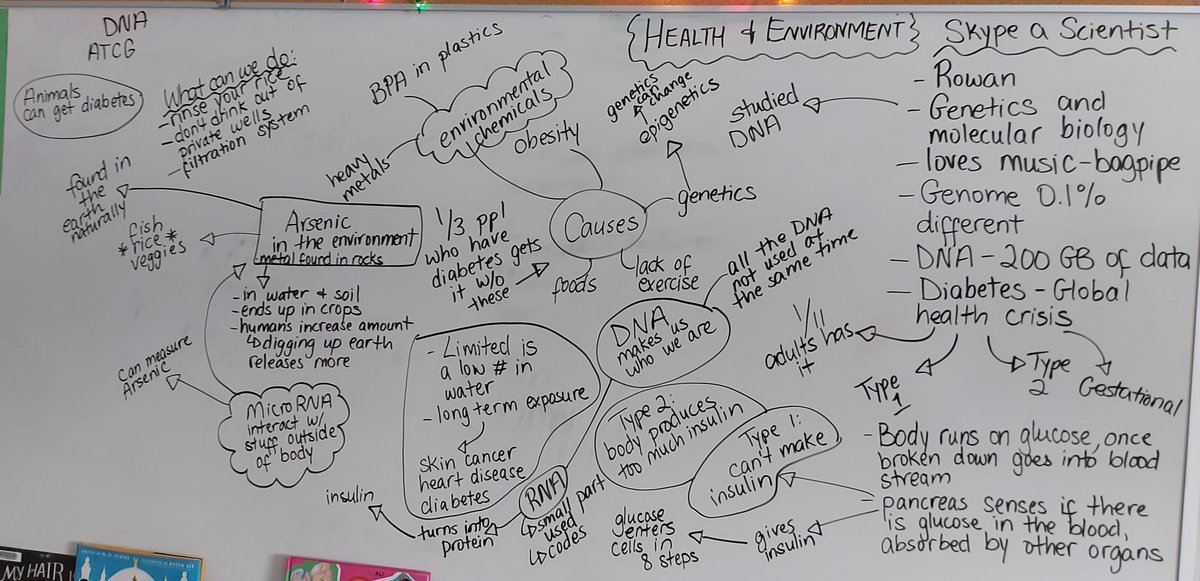 DNA
ATCG
Animals
can get diabetes
What can we do:
- rinse your rice
- don't drink out of
private wells
- filtration system
BPA in plastics
environmental
chemicals
heavy
metals
obesity
Causes
genetics
epigenetics
genetics
can
change
lack of
exercise
foods
1/3 ppl
who have
diabetes gets
it w/o
these
found in
the
earth
naturally
Arsenic
in the environment
metal found in rocks
fish
*rice*
veggies
- in water & soil
- ends up in crops
- humans increase amount
↳ digging up earth
releases more
can measure
Arsenic
MicroRNA
interact w/
stuff outside
of body
- Limited is
a low # in
water
- long term exposure
skin cancer
heart disease
diabetes
DNA
makes us
who we are
all the DNA
not used at
the same time
RNA
↳ small part
used
↳ codes
turns into
protein
insulin
Type 2:
body produces
too much insulin
Type 1:
can't make
insulin
{HEALTH & ENVIRONMENT}
Skype a Scientist
- Rowan
- Genetics and
molecular biology
studied
DNA
- loves music-bagpipe
- Genome 0.1%
different
- DNA - 200 GB of data
- Diabetes - Global
health crisis
1/11
adults has
it
Type
1
Type
2
Gestational
- Body runs on glucose, once
broken down goes into blood
stream
- pancreas senses if there
is glucose in the blood,
absorbed by other organs
gives
insulin
glucose
enters
cells in
8 steps
MY HAIR